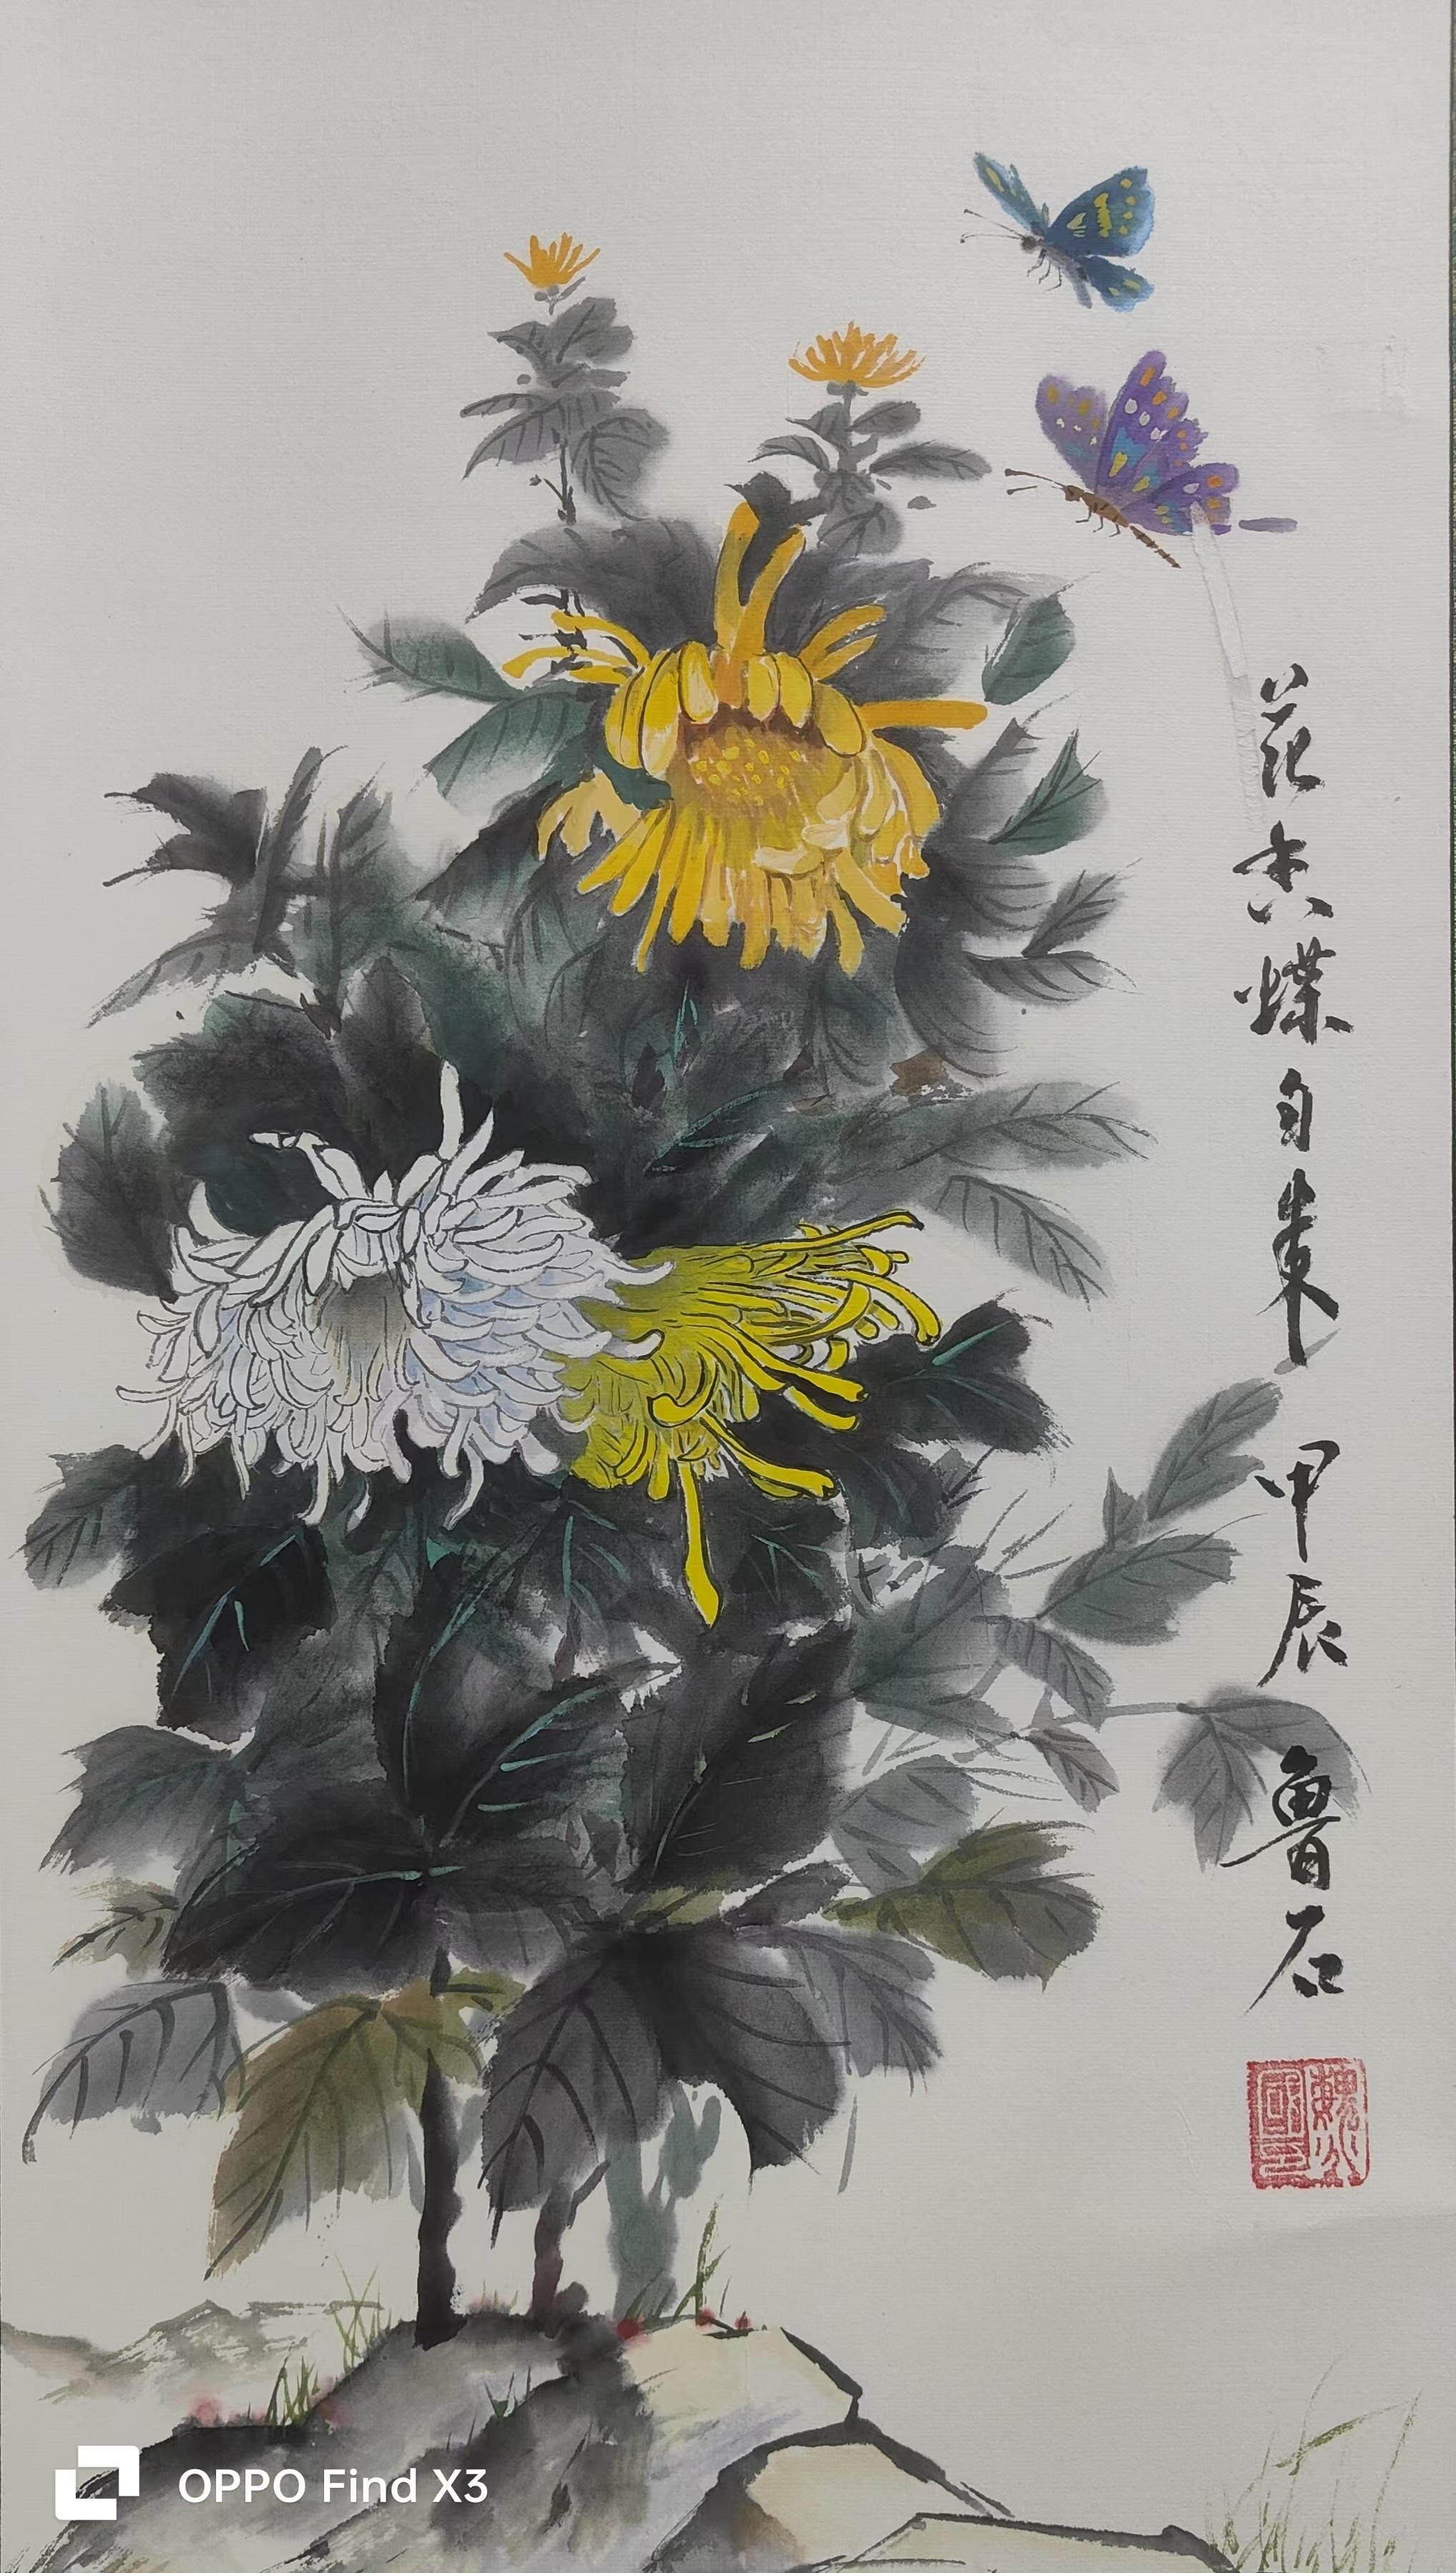 花香蝶自来 甲辰 鲁石
OPPO Find X3